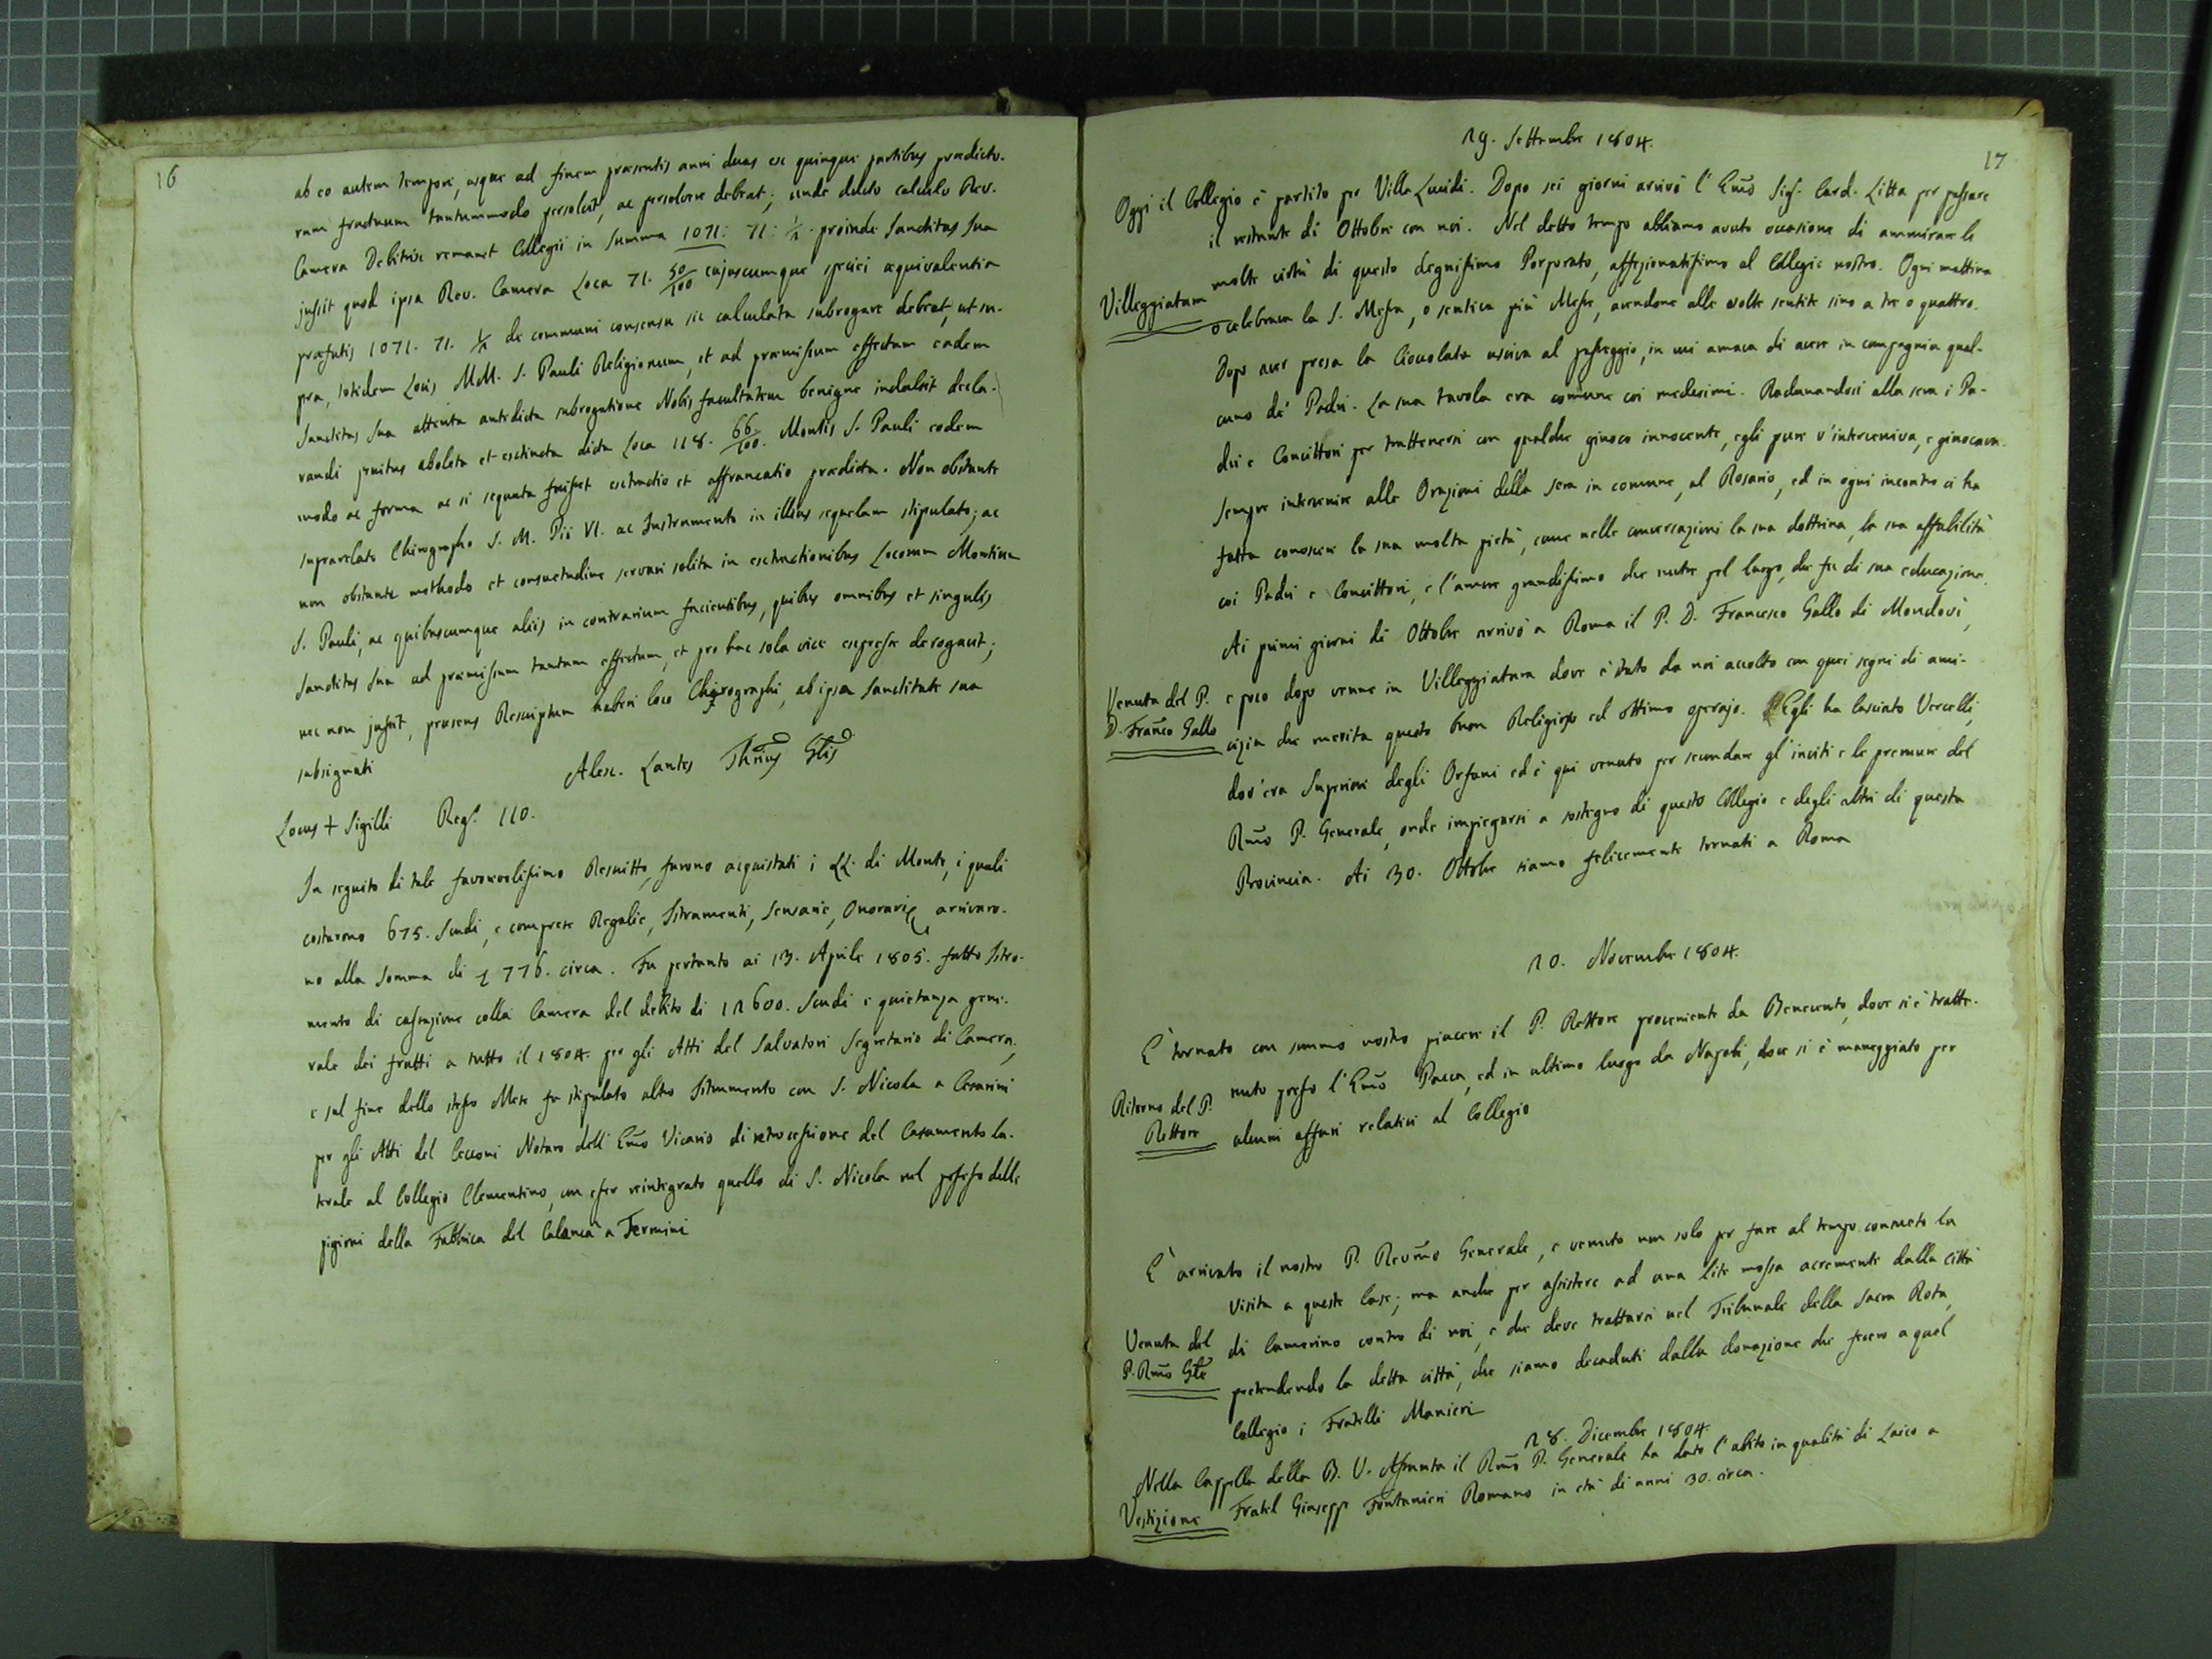 16
ab eo autem tempore, usque ad finem praesentis anni duas ex quinque partibus praedicto-
rum fructuum tantummodo persolvit, ac persolvere debeat; unde ducto calculo Rev.
Camera Debitrix remanet Collegii in summa 1071: 71: ½. proinde Sanctitas Sua
jussit quod ipsa Rev. Camera Loca 71. 50/100 cujuscumque speciei aequivalentia
praefatis 1071. 71. ½ de communi consensu sic calculata subrogare debeat, ut su-
pra, totidem Locis MM. S. Pauli Religionum, et ad praemissum effectum eadem
Sanctitas Sua attenta antedicta subrogatione Nobis facultatem benigne indulsit decla-
randi penitus abolita et extincta dicta Loca 118. 66/100. Montis S. Pauli eodem
modo ac forma ac si sequuta fuisset extractio et affrancatio praedicta. Non obstante
suprarelato Chirographo S. M. Pii VI. ac Instrumento in illius sequelam stipulato; ac
non obstante methodo et consuetudine servari solita in extractionibus Locorum Montium
S. Pauli, ac quibuscumque aliis in contrarium facientibus, quibus omnibus et singulis
Sanctitas Sua ad praemissum tantum effectum, et pro hac sola vice expresse derogavit;
nec non jussit, praesens Rescriptum haberi loco Chirographi, ab ipsa Sanctitate sua
subsignati
Alex. Lantes Thrius Glis
Locus + Sigilli Reg. 110.
In seguito di tale favorevolissimo Rescritto, furono acquistati i LL. di Monte, i quali
costarono 675. Scudi, e comprese Regalie, Istramenti, Sensarie, Onorarie arrivaro-
no alla somma di 776. circa. Fu pertanto ai 13. Aprile 1805. fatto Istro-
mento di cassazione colla Camera del debito di 12600. Scudi e quietanza gene-
rale dei frutti a tutto il 1804. per gli Atti del Salvatori Segretario di Camera,
e sul fine dello stesso Mese fu stipulato altro Istrumento con S. Nicola a Cesarini
per gli Atti del Cecconi Notaro dell' Emo Vicario di retrocessione del Casamento la-
terale al Collegio Clementino, con esser reintegrato quello di S. Nicola nel possesso delle
pigioni della Fabbrica del Calanca a Termini
17
29. Settembre 1804.
Oggi il Collegio è partito per Villa Lucidi. Dopo sei giorni arrivò l' Emo Sig. Card. Litta per passare
il restante di Ottobre con noi. Nel detto tempo abbiamo avuto occasione di ammirare le
molte virtù di questo degnissimo Porporato, affezionatissimo al Collegio nostro. Ogni mattina
Villeggiatura
o celebrava la S. Messa, o sentiva più Messe, avendone alle volte sentite sino a tre o quattro.
Dopo aver presa la Cioccolata usciva al passeggio, in cui amava di avere in compagnia qual-
cuno de' Padri. La sua tavola era comune coi medesimi. Radunandosi alla sera i Pa-
dri e Convittori per trattenersi con qualche giuoco innocente, egli pure v'interveniva, e giuocava.
Sempre intervenire alle Orazioni della sera in comune, al Rosario, ed in ogni incontro ci ha
fatta conoscere la sua molta pietà, come nelle conversazioni la sua dottrina, la sua affabilità
coi Padri e Convittori, e l'amore grandissimo che nutre pel luogo, che fu di sua educazione.
Ai primi giorni di Ottobre arrivò a Roma il P. D. Francesco Gallo di Mondovì,
Venuta del P.
D. Franco Gallo
e poco dopo venne in Villeggiatura dove è stato da noi accolto con quei segni di ami-
cizia che merita questo buon Religioso ed ottimo operajo. Egli ha lasciato Vercelli,
dov'era Superiore degli Orfani ed è qui venuto per secondare gl'inviti e le premure del
Rmo P. Generale, onde impiegarsi a sostegno di questo Collegio e degli altri di questa
Provincia. Ai 30. Ottobre siamo felicemente tornati a Roma
20. Novembre 1804.
È tornato con sommo nostro piacere il P. Rettore proveniente da Benevento, dove si è tratte-
Ritorno del P.
Rettore
nuto presso l'Emo Pacca, ed in ultimo luogo da Napoli, dove si è maneggiato per
alcuni affari relativi al Collegio
È arrivato il nostro P. Revmo Generale, e venuto non solo per fare al tempo consueto la
visita a queste Case; ma anche per assistere ad una lite mossa acremente dalla città
Venuta del
P. Rmo Gle
di Camerino contro di noi, e che deve trattarsi nel Tribunale della Sacra Rota,
pretendendo la detta città, che siamo decaduti dalla donazione che fecero a quel
Collegio i Fratelli Manieri
28. Dicembre 1804.
Nella Cappella della B. V. Assunta il Rmo P. Generale ha dato l'abito in qualità di Laico a
Vestizione
Fratel Giuseppe Fontanieri Romano in età di anni 30. circa.